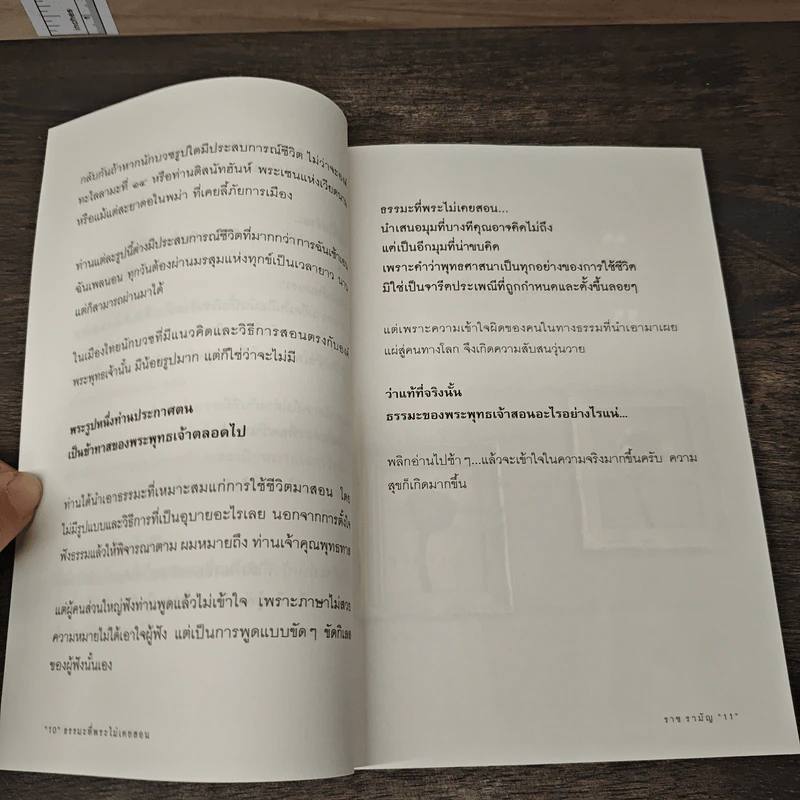 กลับกันถ้าหากนักบวชรูปใดมีประสบการณ์ชีวิต ไม่ว่าจะองค์
ทะไลลามะที่ ๑๔ หรือท่านติสนัทฮันห์ พระเซนแห่งเวียดนาม
หรือแม้แต่สะยาดอในพม่า ที่เคยลี้ภัยการเมือง
ท่านแต่ละรูปนี้ต่างมีประสบการณ์ชีวิตที่มากกว่าการฉันเช้าเอน
ฉันเพลนอน ทุกวันต้องผ่านมรสุมแห่งทุกข์เป็นเวลายาว นาน
แต่ก็สามารถผ่านมาได้
ในเมืองไทยนักบวชที่มีแนวคิดและวิธีการสอนตรงกับองค์
พระพุทธเจ้านั้น มีน้อยรูปมาก แต่ก็ใช่ว่าจะไม่มี
พระรูปหนึ่งท่านประกาศตน
เป็นข้าทาสของพระพุทธเจ้าตลอดไป
ท่านได้นำเอาธรรมะที่เหมาะสมแก่การใช้ชีวิตมาสอน โดย
ไม่มีรูปแบบและวิธีการที่เป็นอุบายอะไรเลย นอกจากการตั้งใจ
ฟังธรรมแล้วให้พิจารณาตาม ผมหมายถึง ท่านเจ้าคุณพุทธทาส
แต่ผู้คนส่วนใหญ่ฟังท่านพูดแล้วไม่เข้าใจ เพราะภาษาไม่สวย
ความหมายไม่ได้เอาใจผู้ฟัง แต่เป็นการพูดแบบขัดๆ ขัดกิเลส
ของผู้ฟังนั้นเอง
"10" ธรรมะที่พระไม่เคยสอน
ธรรมะที่พระไม่เคยสอน...
นำเสนอมุมที่บางทีคุณอาจคิดไม่ถึง
แต่เป็นอีกมุมที่น่าขบคิด
เพราะคำว่าพุทธศาสนาเป็นทุกอย่างของการใช้ชีวิต
มิใช่เป็นจารีตประเพณีที่ถูกกำหนดและตั้งขึ้นลอยๆ
แต่เพราะความเข้าใจผิดของคนในทางธรรมที่นำเอามาเผย
แผ่สู่คนทางโลก จึงเกิดความสับสนวุ่นวาย
ว่าแท้ที่จริงนั้น
ธรรมะของพระพุทธเจ้าสอนอะไรอย่างไรแน่...
พลิกอ่านไปช้าๆ...แล้วจะเข้าใจในความจริงมากขึ้นครับ ความ
สุขก็เกิดมากขึ้น
ราช รามัญ "11"
inches